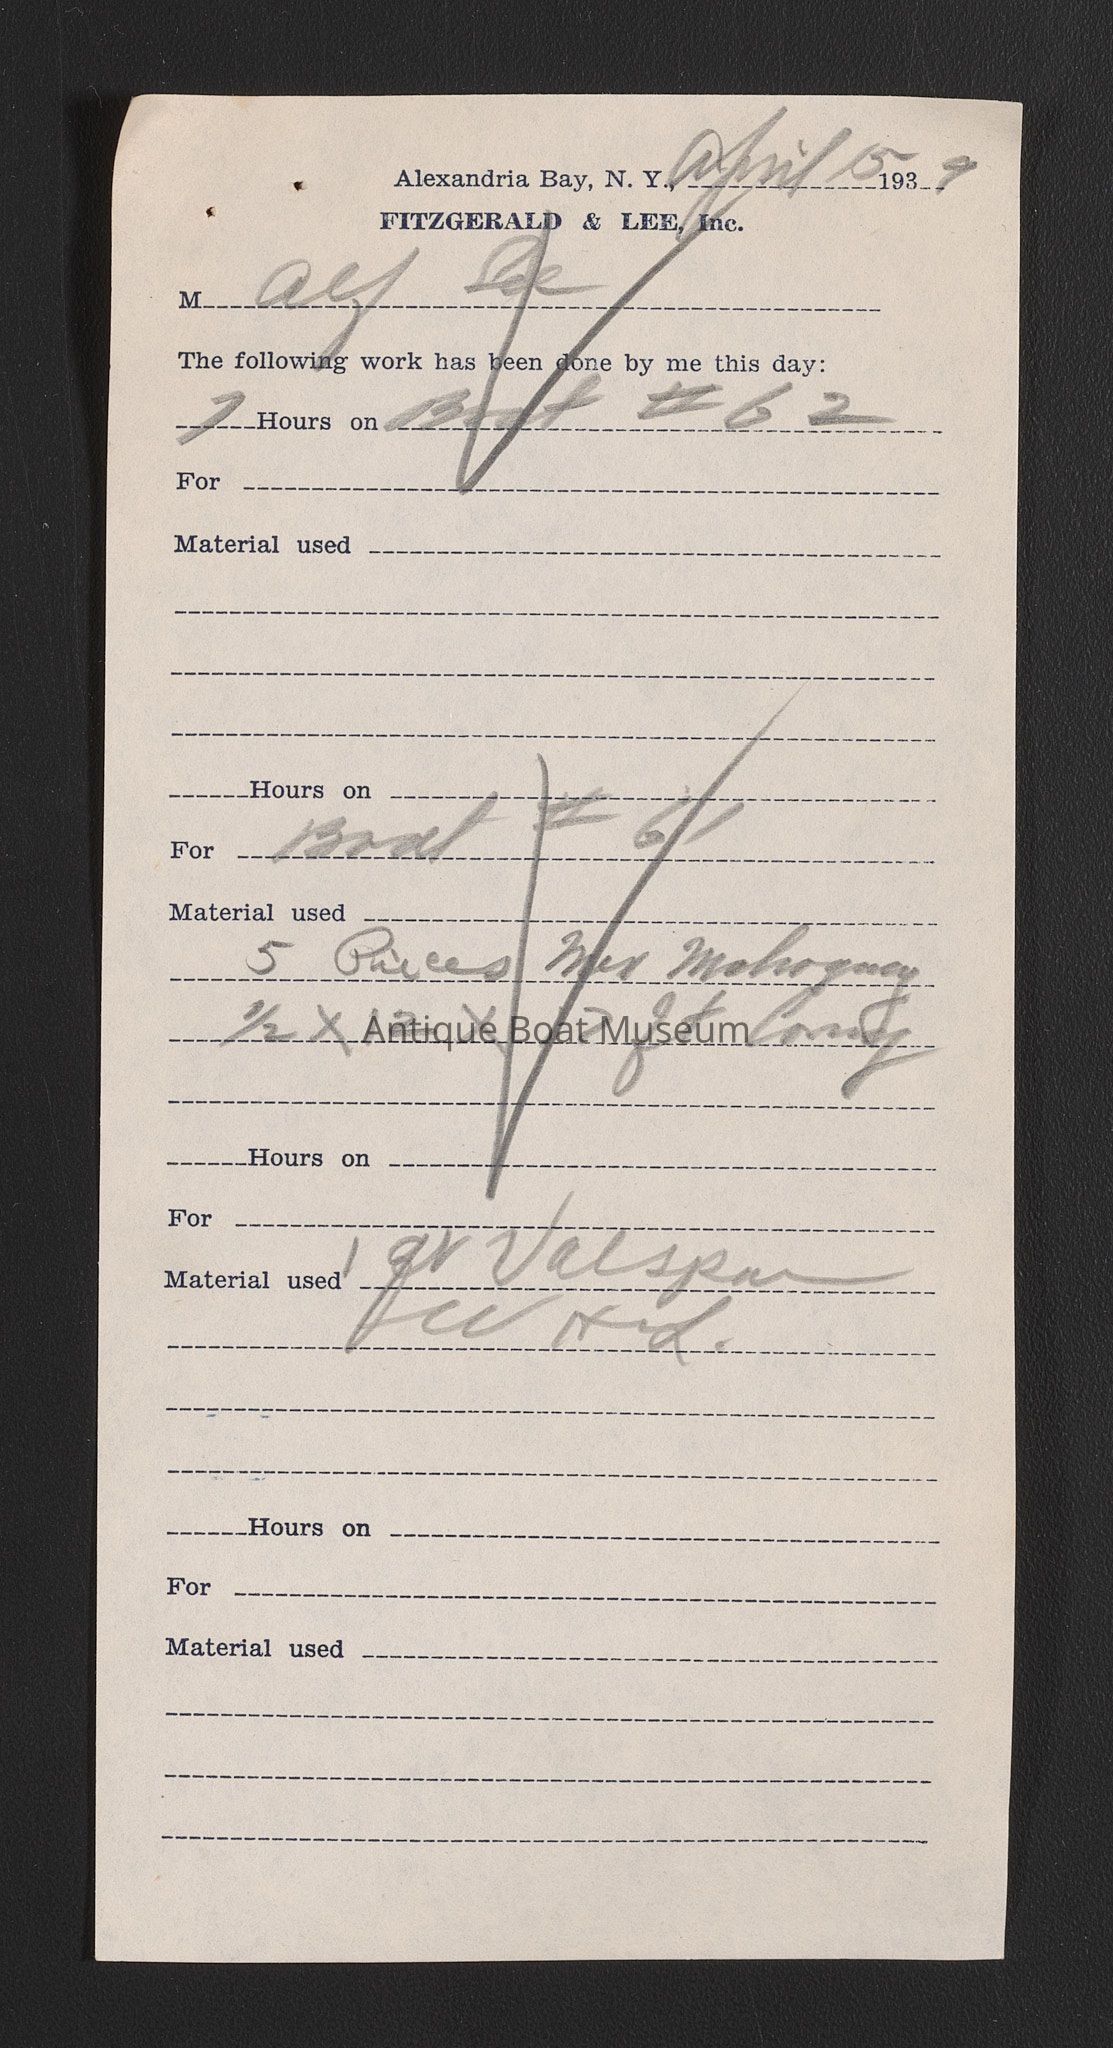 Alexandria Bay, N. Y., April 15 1939
FITZGERALD & LEE, Inc.
M Alf Lee
The following work has been done by me this day:
7 Hours on Boat # 62
For
Material used
Hours on
For Boat # 61
Material used
5 Pieces Mex Mahogany
1/2 X 12 X 7 ft Long
Antique Boat Museum
Hours on
For
Material used 1 qt Valspar
Hours on
For
Material used